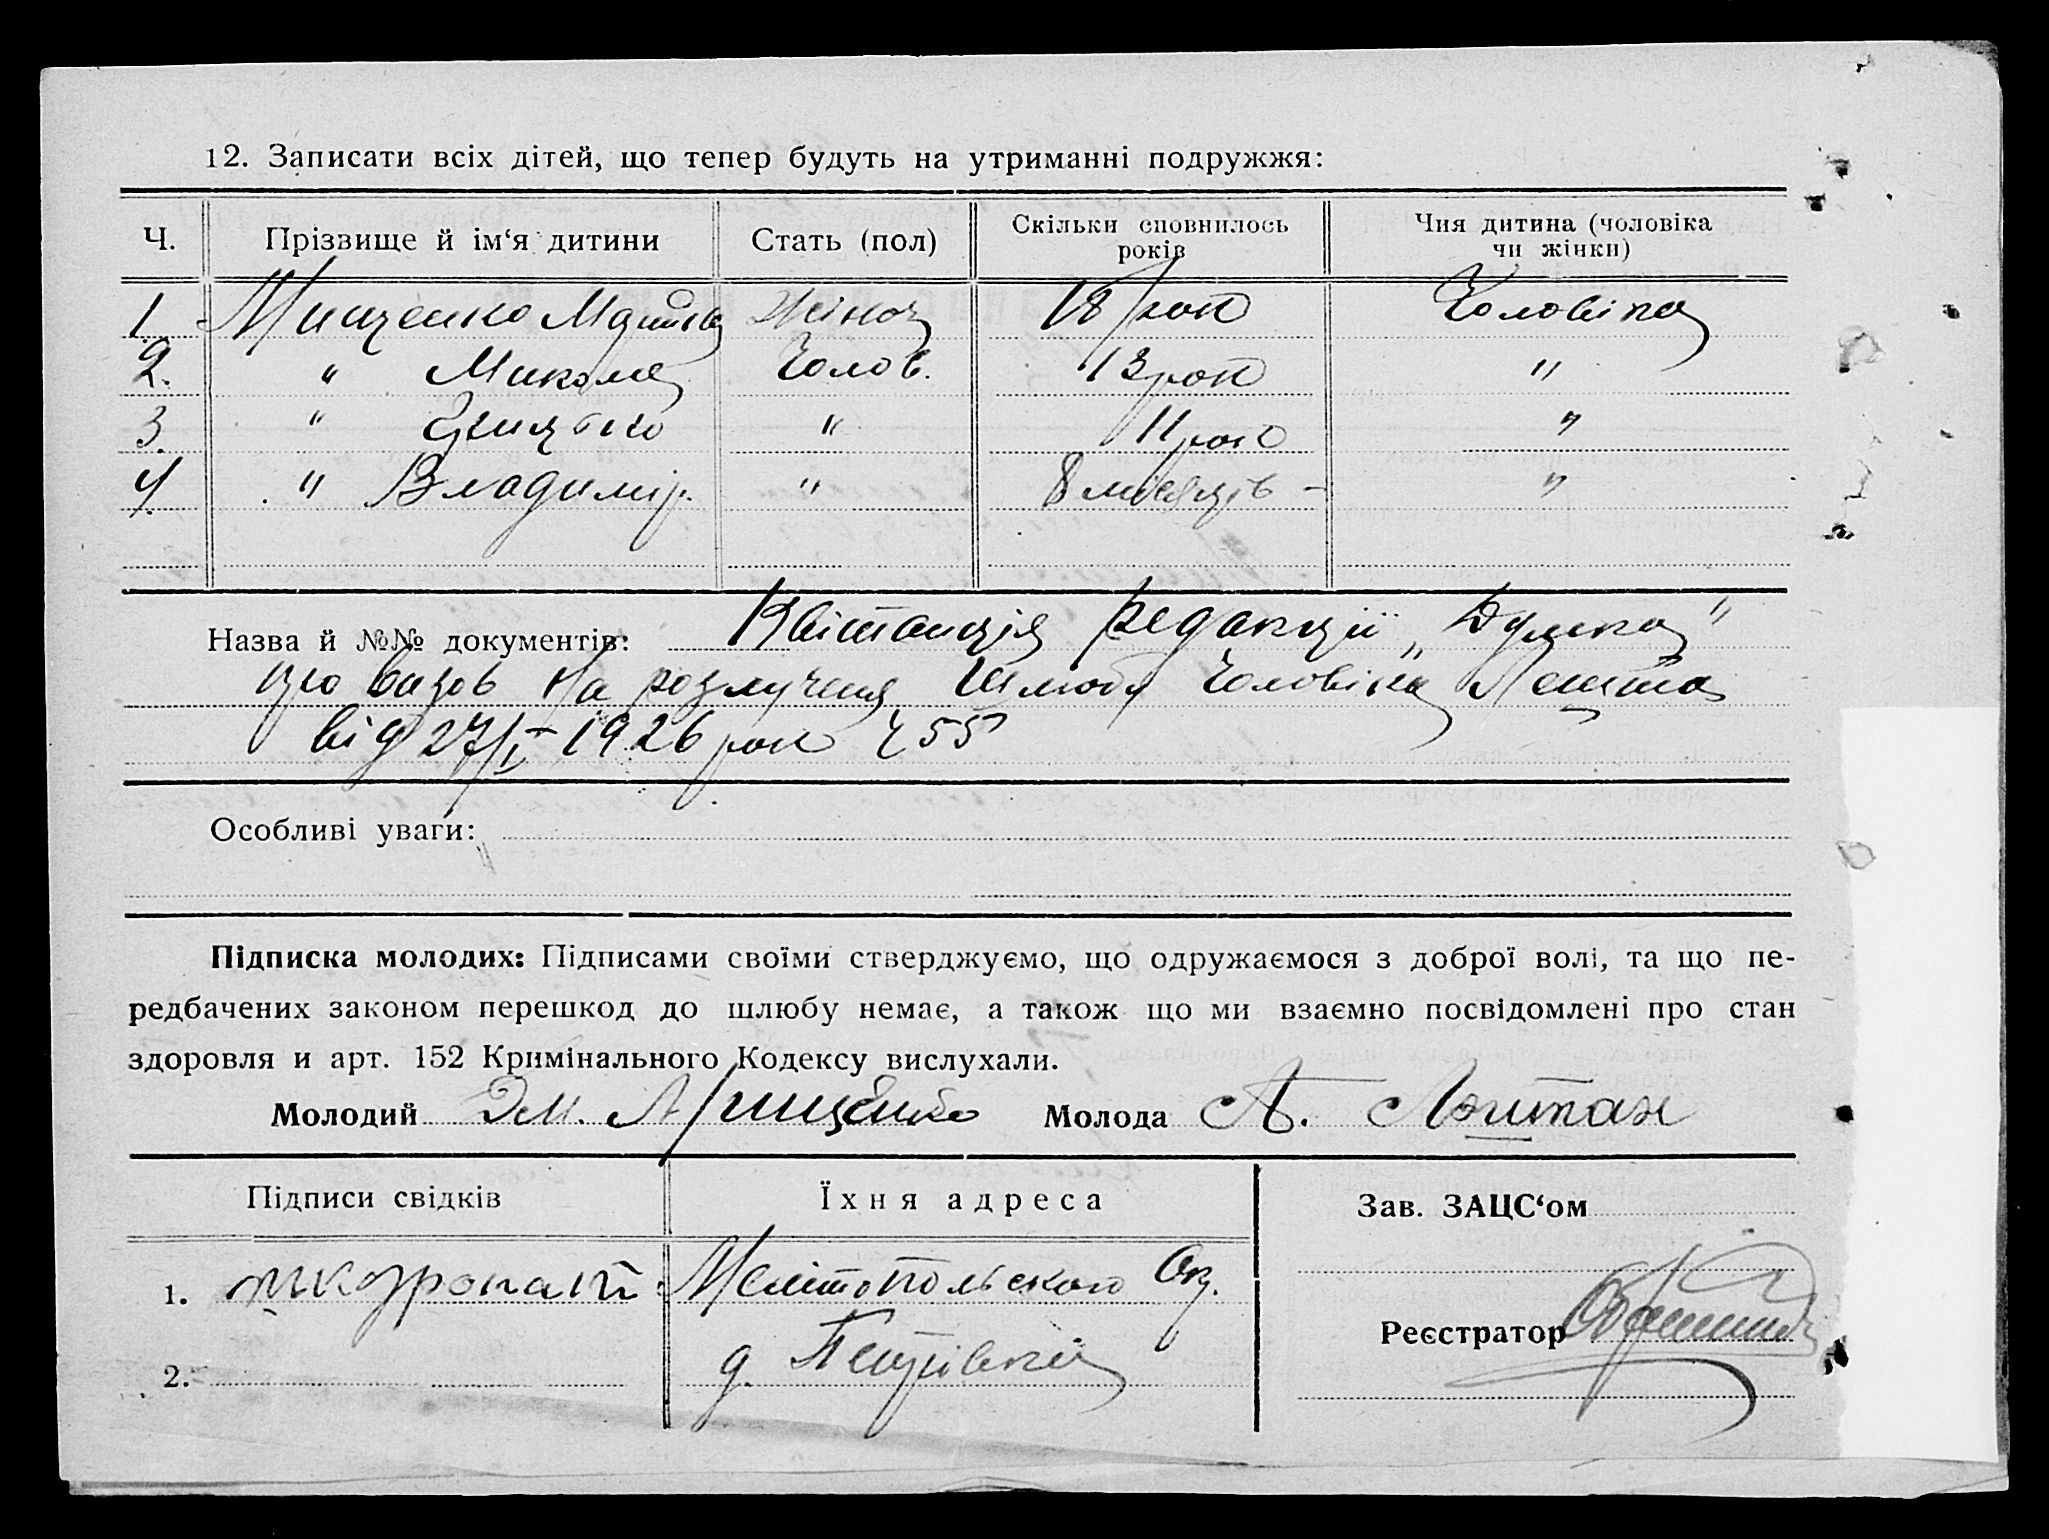 12. Записати всіх дітей, що тепер будуть на утриманні подружжя:
Ч. Прізвище й ім‘я дитини Стать (пол) Скільки сповнилось років Чия дитина (чоловіка чи жінки)
1 Мищенко Жіноч 18 рок Чоловіка
2. " Микола Чолов. 13 рок "
3. " " 11 рок "
4. " Владимір. " 8 місяців - "
Назва й №№ документів: Квітанція редакції „Думка"
про визов на розлученя шлюбу чоловіка
від 27/I 1926 рок Ч 55
Особливі уваги:
Підписка молодих: Підписами своїми стверджуємо, що одружаємося з доброї волі, та що пе-
редбачених законом перешкод до шлюбу немає, а також що ми взаємно посвідомлені про стан
здоровля и арт. 152 Кримінального Кодексу вислухали.
Молодий Дм. Мищенко Молода А.
Підписи свідків Їхня адреса Зав. ЗАЦС‘ом
1. Мелітопольского Ок.
Реєстратор
2. д. Петрівка